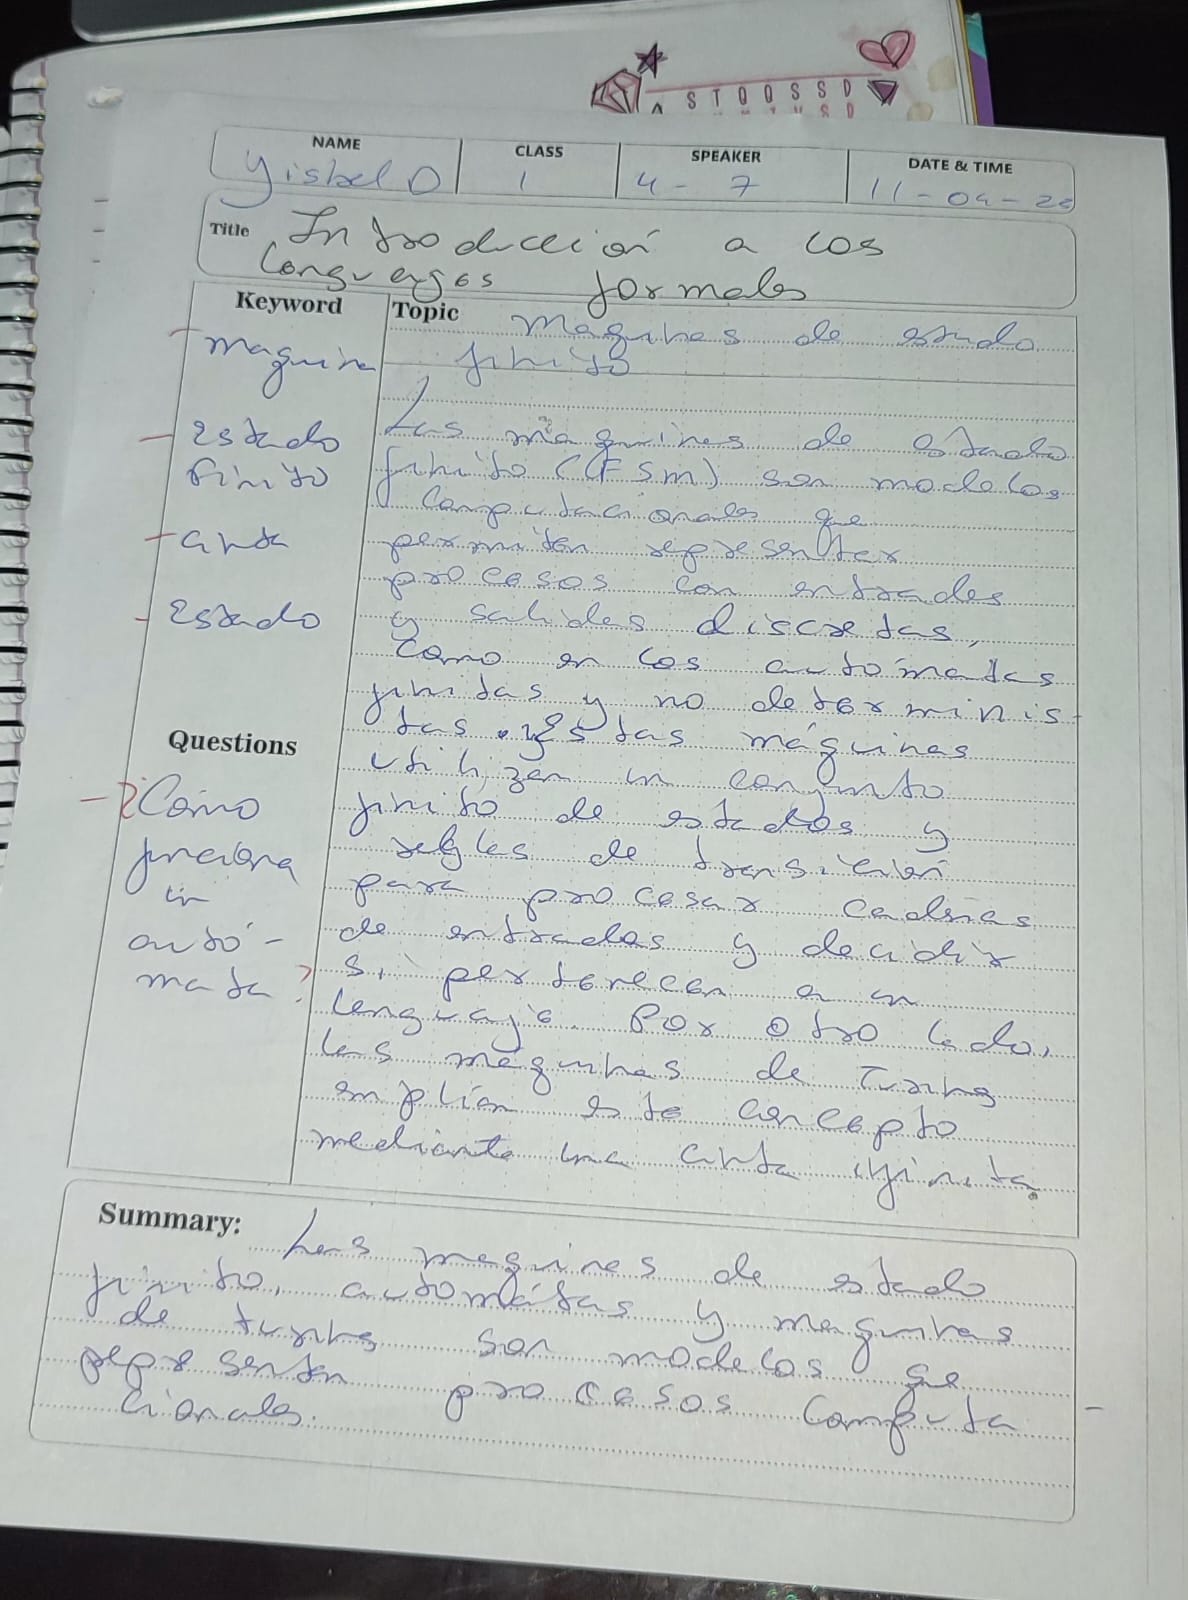 A S T Q Q S S D
NAME
CLASS
SPEAKER
DATE & TIME
Yisbel O
1
4 - 7
11 - 04 -
Title Introducción a los
Lenguajes formales
Keyword
- maquina
- Estado
finito
- cinta
- Estado
Questions
- ¿Como
funciona
un
autó-
mata?
Topic maquinas de estado
finito
Las máquinas de estado
finito (FSM) son modelos
computacionales que
permiten representar
procesos con entradas
y salidas discretas,
como en los autómatas
finitas y no determinis-
tas. Estas máquinas
utilizan un conjunto
finito de estados y
reglas de transición
para procesar cadenas
de entradas y decidir
si pertenecen a un
lenguaje. Por otro lado,
las maquinas de Turing
amplían este concepto
mediante una cinta infinita.
Summary:
Las maquinas de estado
finito, autómatas y maquinas
de turing son modelos que
representan procesos computa-
cionales.